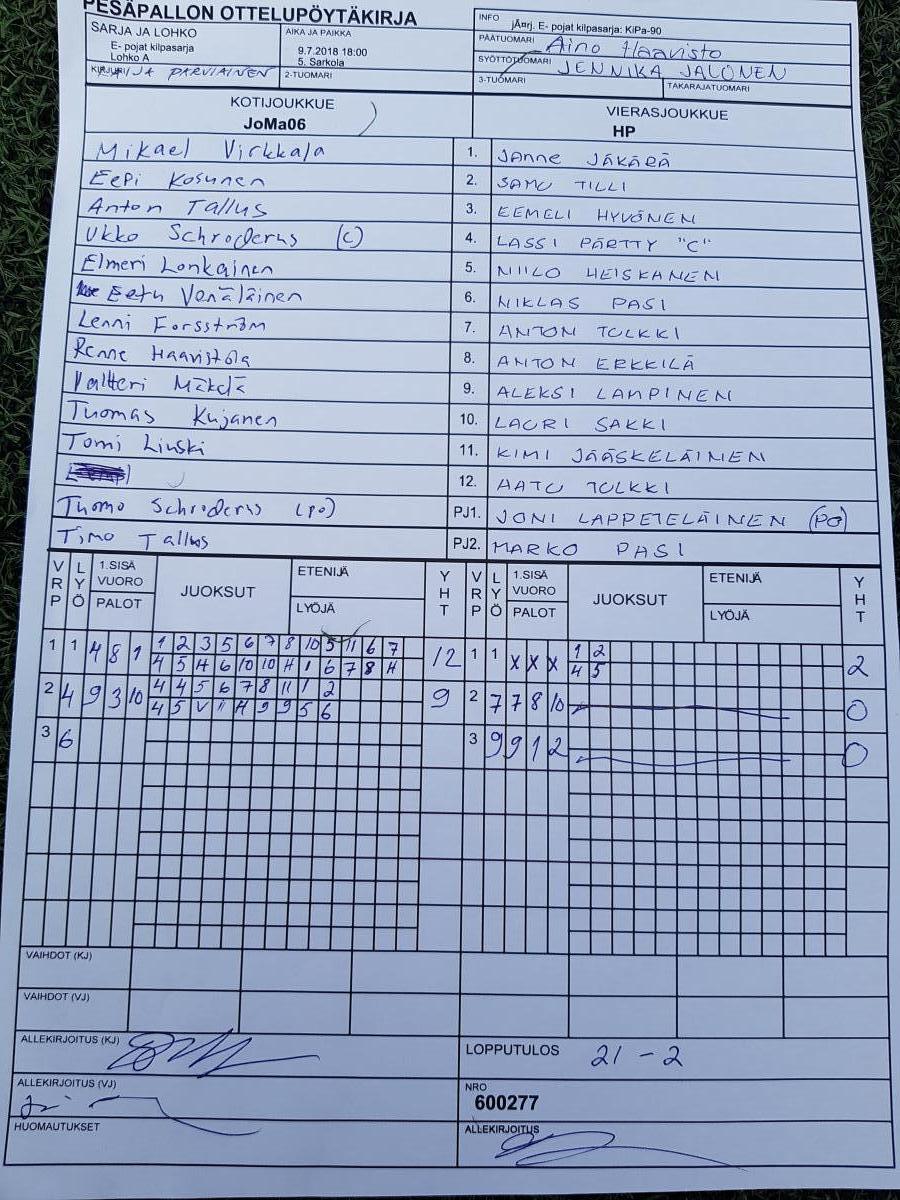 PESÄPALLON OTTELUPÖYTÄKIRJA
SARJA JA LOHKO
E- pojat kilpasarja
Lohko A
AIKA JA PAIKKA
9.7.2018 18:00
5. Sarkola
INFO
jÄrrj. E- pojat kilpasarja: KiPa-90
PÄÄTUOMARI Aino Haavisto
SYÖTTÖTUOMARI JENNIKA JALONEN
KIRJURI PARVIAINEN
2-TUOMARI
3-TUOMARI
TAKARAJATUOMARI
KOTIJOUKKUE
JoMa06
VIERASJOUKKUE
HP
Mikael Virkkala 1. JANNE JÄKÄRÄ
Eepi Kosunen 2. SAMU TILLI
Anton Tallus 3. EEMELI HYVÖNEN
Ukko Schroderus (C) 4. LASSI PÄRTTY "C"
Elmeri Lonkainen 5. NIILO HEISKANEN
Eetu Venäläinen 6. NIKLAS PASI
Lenni Forsström 7. ANTON TOLKKI
Renne Haavistola 8. ANTON ERKKILÄ
Valtteri 9. ALEKSI LAMPINEN
Tuomas Kujanen 10. LAURI SAKKI
Tomi Linski 11. KIMI JÄÄSKELÄINEN
12. AATU TOLKKI
Tuomo Schroderus (PO) PJ1. JONI LAPPETELÄINEN (PO)
Timo Tallus PJ2. MARKO PASI
VRP LYÖ 1.SISÄ VUORO PALOT JUOKSUT ETENIJÄ LYÖJÄ YHT VRP LYÖ 1.SISÄ VUORO PALOT JUOKSUT ETENIJÄ LYÖJÄ YHT
1 1 4 8 1 1 2 3 5 6 7 8 10 5 11 6 7 12 1 1 X X X 1 2 2
4 5 H 6 10 10 H 1 6 7 8 H 4 5
2 4 9 3 10 4 4 5 6 7 8 11 1 2 9 2 7 7 8 10 0
4 5 V 11 H 9 9 5 6
3 6 3 9 9 1 2 0
VAIHDOT (KJ)
VAIHDOT (VJ)
ALLEKIRJOITUS (KJ)
LOPPUTULOS 21 - 2
ALLEKIRJOITUS (VJ)
NRO
600277
HUOMAUTUKSET
ALLEKIRJOITUS